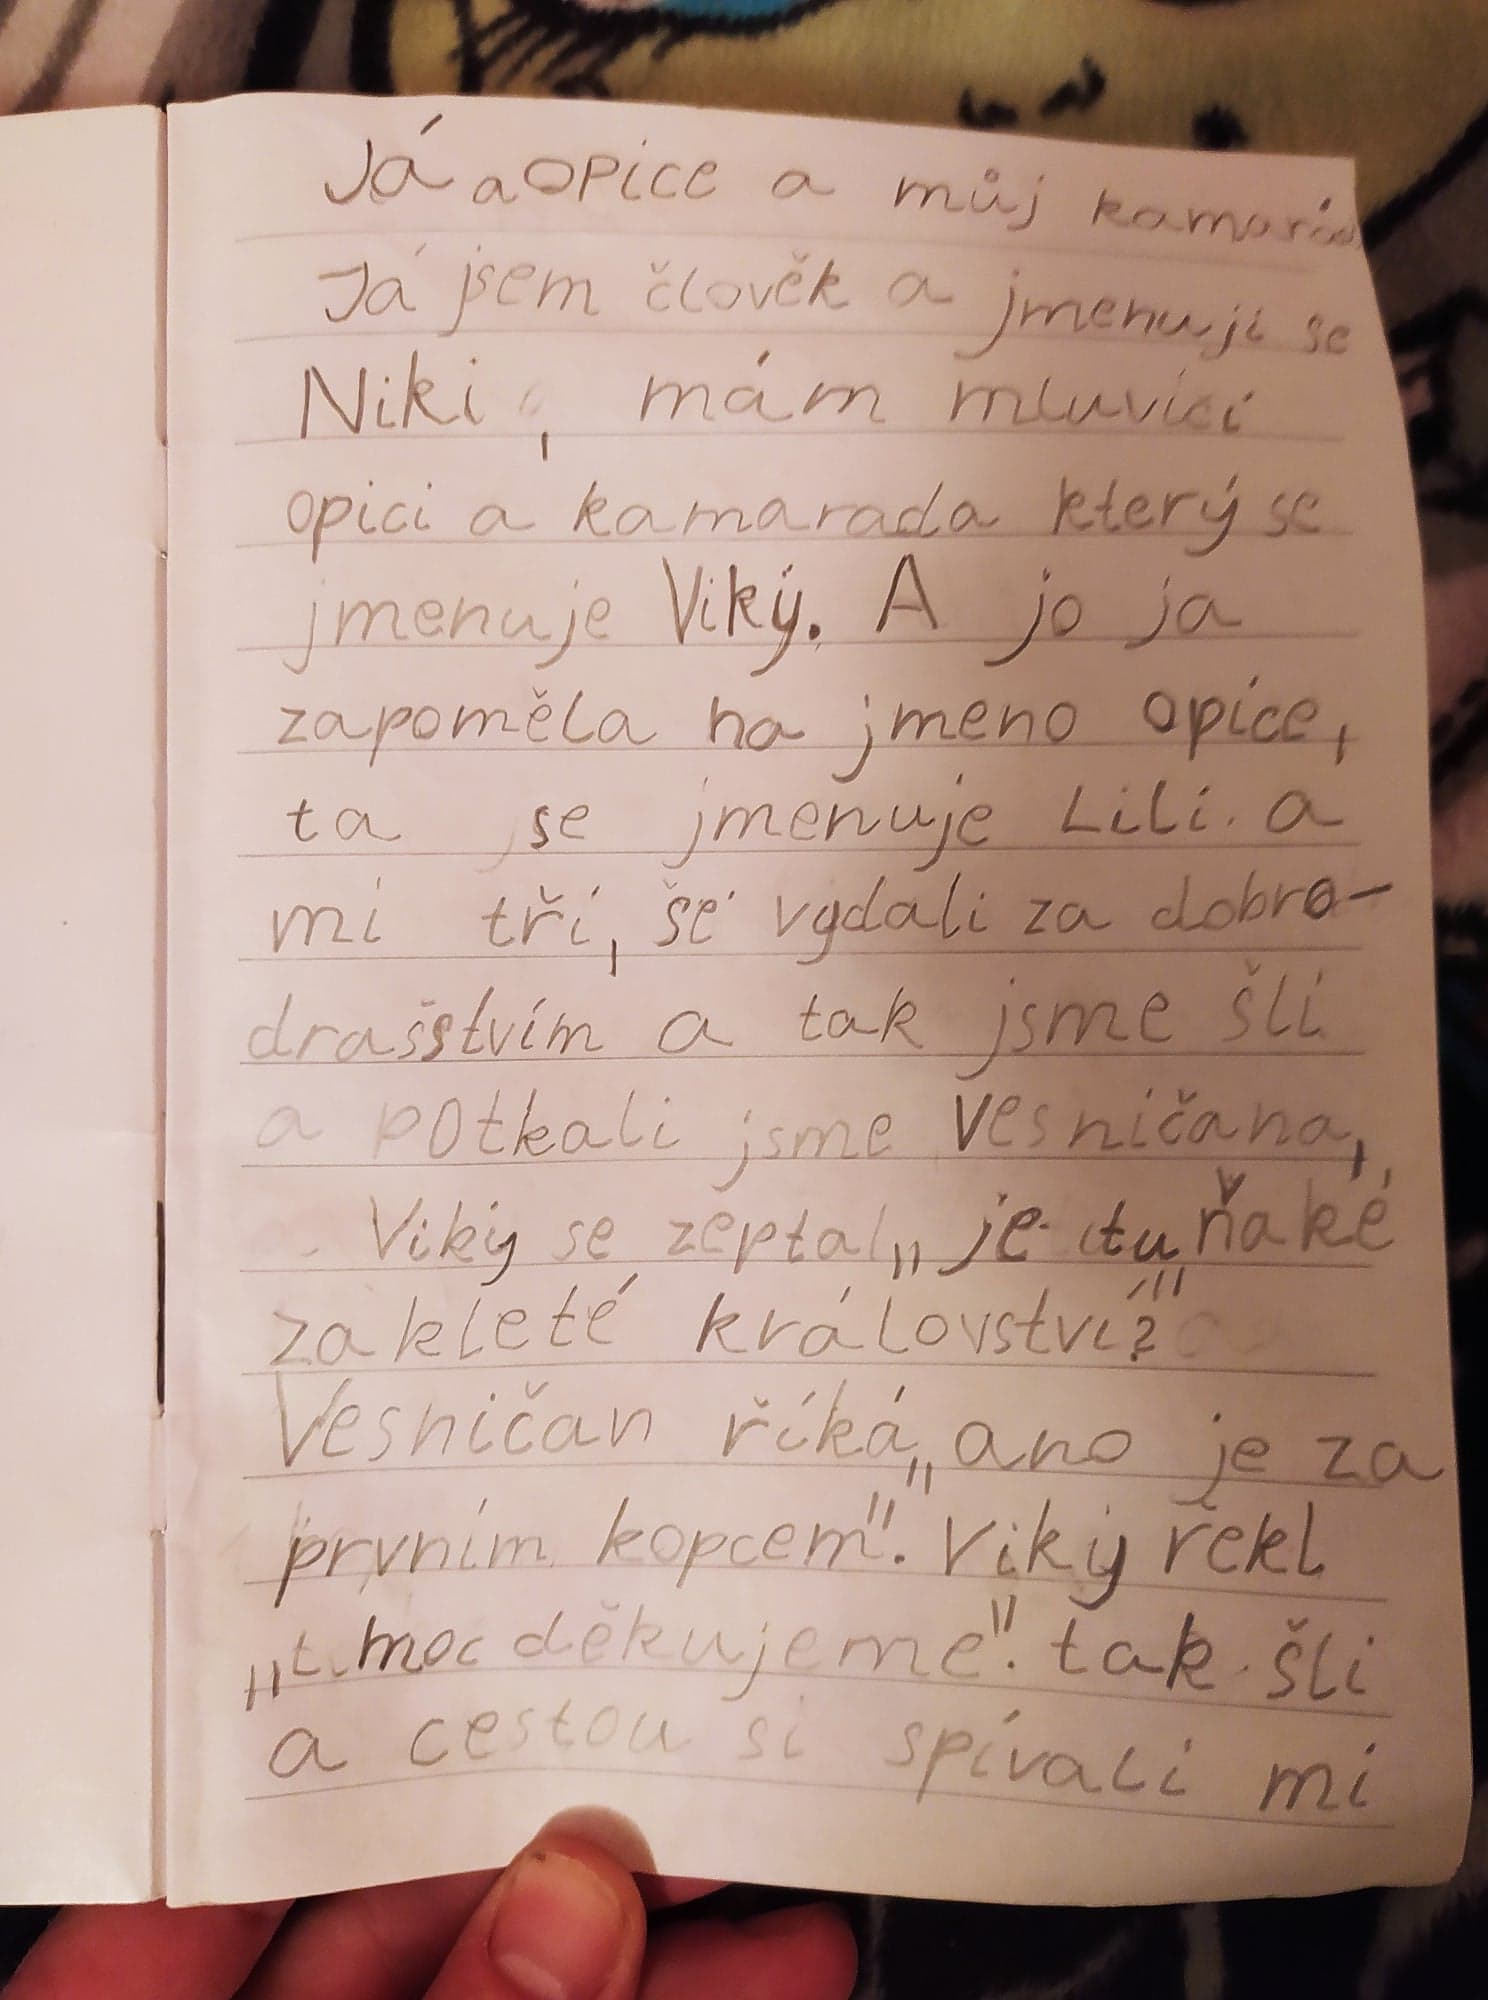 Já a opice a můj kamarád
Já jsem člověk a jmenuji se
Niki, mám mluvící
opici a kamarada který se
jmenuje Viký. A jo ja
zapoměla na jmeno opice,
ta se jmenuje Lili. a
mi tři, še vydali za dobro-
drašstvím a tak jsme šli
a potkali jsme vesničana,
Viký se zeptal „je tu ňaké
zakleté království?"
Vesničan říká „ano je za
prvním kopcem". Viký řekl
„moc děkujeme". tak šli
a cestou si spívali mi